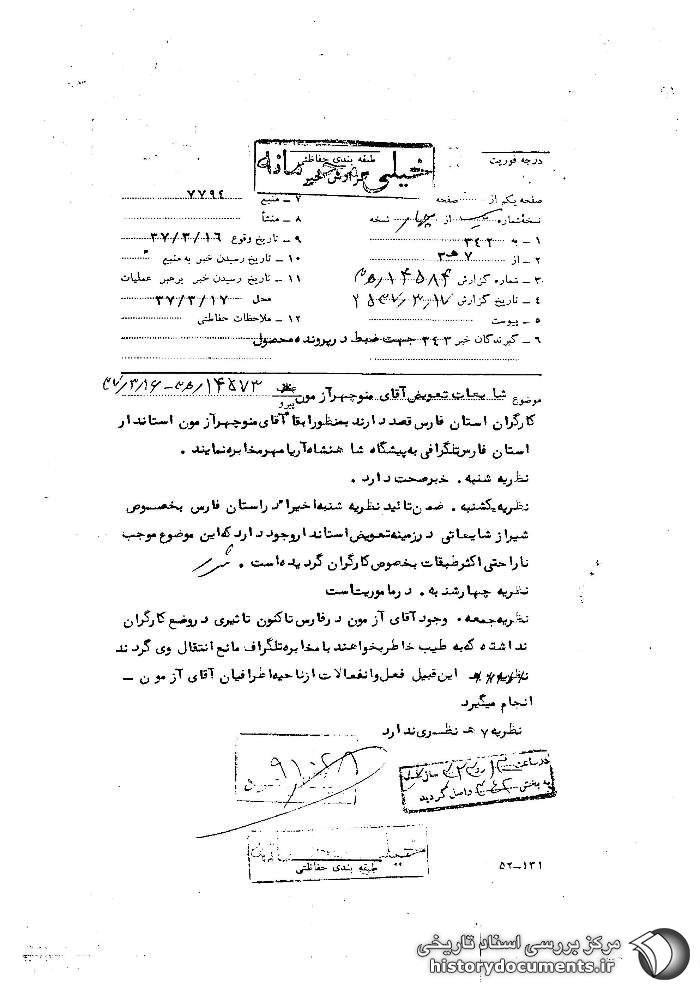 درجه فوریت
طبقه بندی حفاظتی
خیلی محرمانه
گزارش خبر
صفحه یکم از صفحه
نسخه شماره یک از چهار نسخه
۱ - به ۳۴۲
۲ - از ۷ هـ ۳
۳ - شماره گزارش ۱۴۵۸۴
۴ - تاریخ گزارش ۲۵۳۷/۳/۱۷
۵ - پیوست
۶ - گیرندگان خبر ۳۴۳ جهت ضبط در پرونده محصول
۷ - منبع ۷۷۹۴
۸ - منشأ
۹ - تاریخ وقوع ۳۷/۳/۱۶
۱۰ - تاریخ رسیدن خبر به منبع
۱۱ - تاریخ رسیدن خبر برهبر عملیات
محل ۳۷/۳/۱۷
۱۲ - ملاحظات حفاظتی
موضوع شایعات تعویض آقای منوچهر آزمون پیرو ۱۴۵۷۳ - ۳۷/۳/۱۶
کارگران استان فارس قصد دارند بمنظور ابقا آقای منوچهر آزمون استاندار
استان فارس تلگرافی به پیشگاه شاهنشاه آریامهر مخابره نمایند .
نظریه شنبه . خبر صحت دارد .
نظریه یکشنبه . ضمن تائید نظریه شنبه اخیرا در استان فارس بخصوص
شیراز شایعاتی در زمینه تعویض استاندار وجود دارد که این موضوع موجب
ناراحتی اکثر طبقات بخصوص کارگران گردیده است .
نظریه چهارشنبه . در ماموریت است
نظریه جمعه . وجود آقای آزمون در فارس تاکنون تاثیری در وضع کارگران
نداشته که به طیب خاطر بخواهند با مخابره تلگراف مانع انتقال وی گردند
این قبیل فعل و انفعالات از ناحیه اطرافیان آقای آزمون -
انجام میگیرد
نظریه ۷ هـ نظری ندارد
۹۱۰۲۸
در ساعت روز سال
به بخش ۳۴۲ واصل گردید
خیلی محرمانه
طبقه بندی حفاظتی
۵۲-۱۳۱
مرکز بررسی اسناد تاریخی
historydocuments.ir